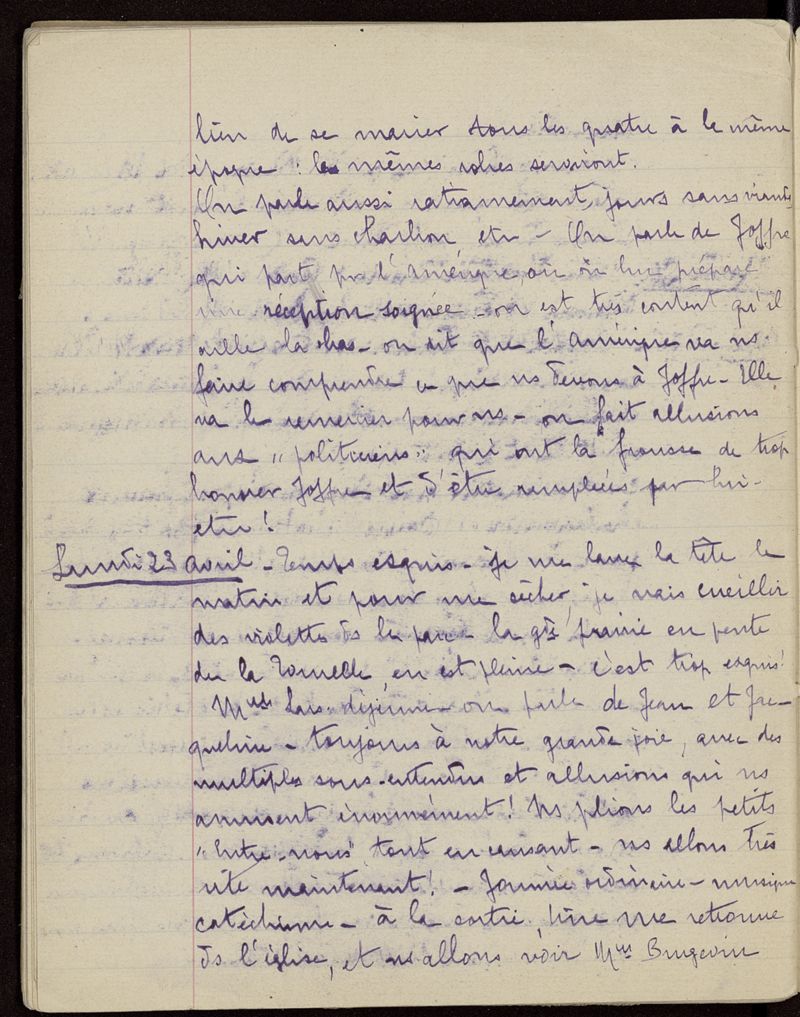 lieu de se marier tous les quatre à la même
époque : les mêmes robes serviront.
On parle aussi rationnement, jours sans viande
hiver sans charbon etc – On parle de Joffre
qui part pr l'Amérique, où on lui prépare
une réception soignée – on est très content qu'il
aille là bas – on dit que l'Amérique va ns
faire comprendre ce que ns devons à Joffre – Elle
va le remercier pour ns – on fait allusions
aux "politiciens" qui ont la frousse de trop
honorer Joffre et d'être remplacés par lui –
etc !
Lundi 23 avril – Temps exquis – je me lave la tête le
matin et pour me sécher, je vais cueillir
des violettes ds le parc – la gde prairie en pente
de la Tournelle, en est pleine – c'est trop exquis !
déjeune – on parle de Jean et Jac-
queline – toujours à notre grande joie, avec des
multiples sous-entendus et allusions qui ns
amusent énormément ! Ns plions les petits
"Entre-nous" tout en causant – ns allons très
vite maintenant ! – Journée ordinaire – musique
catéchisme – à la sortie, me retrouve
ds l'église, et ns allons voir Mme Brugevin